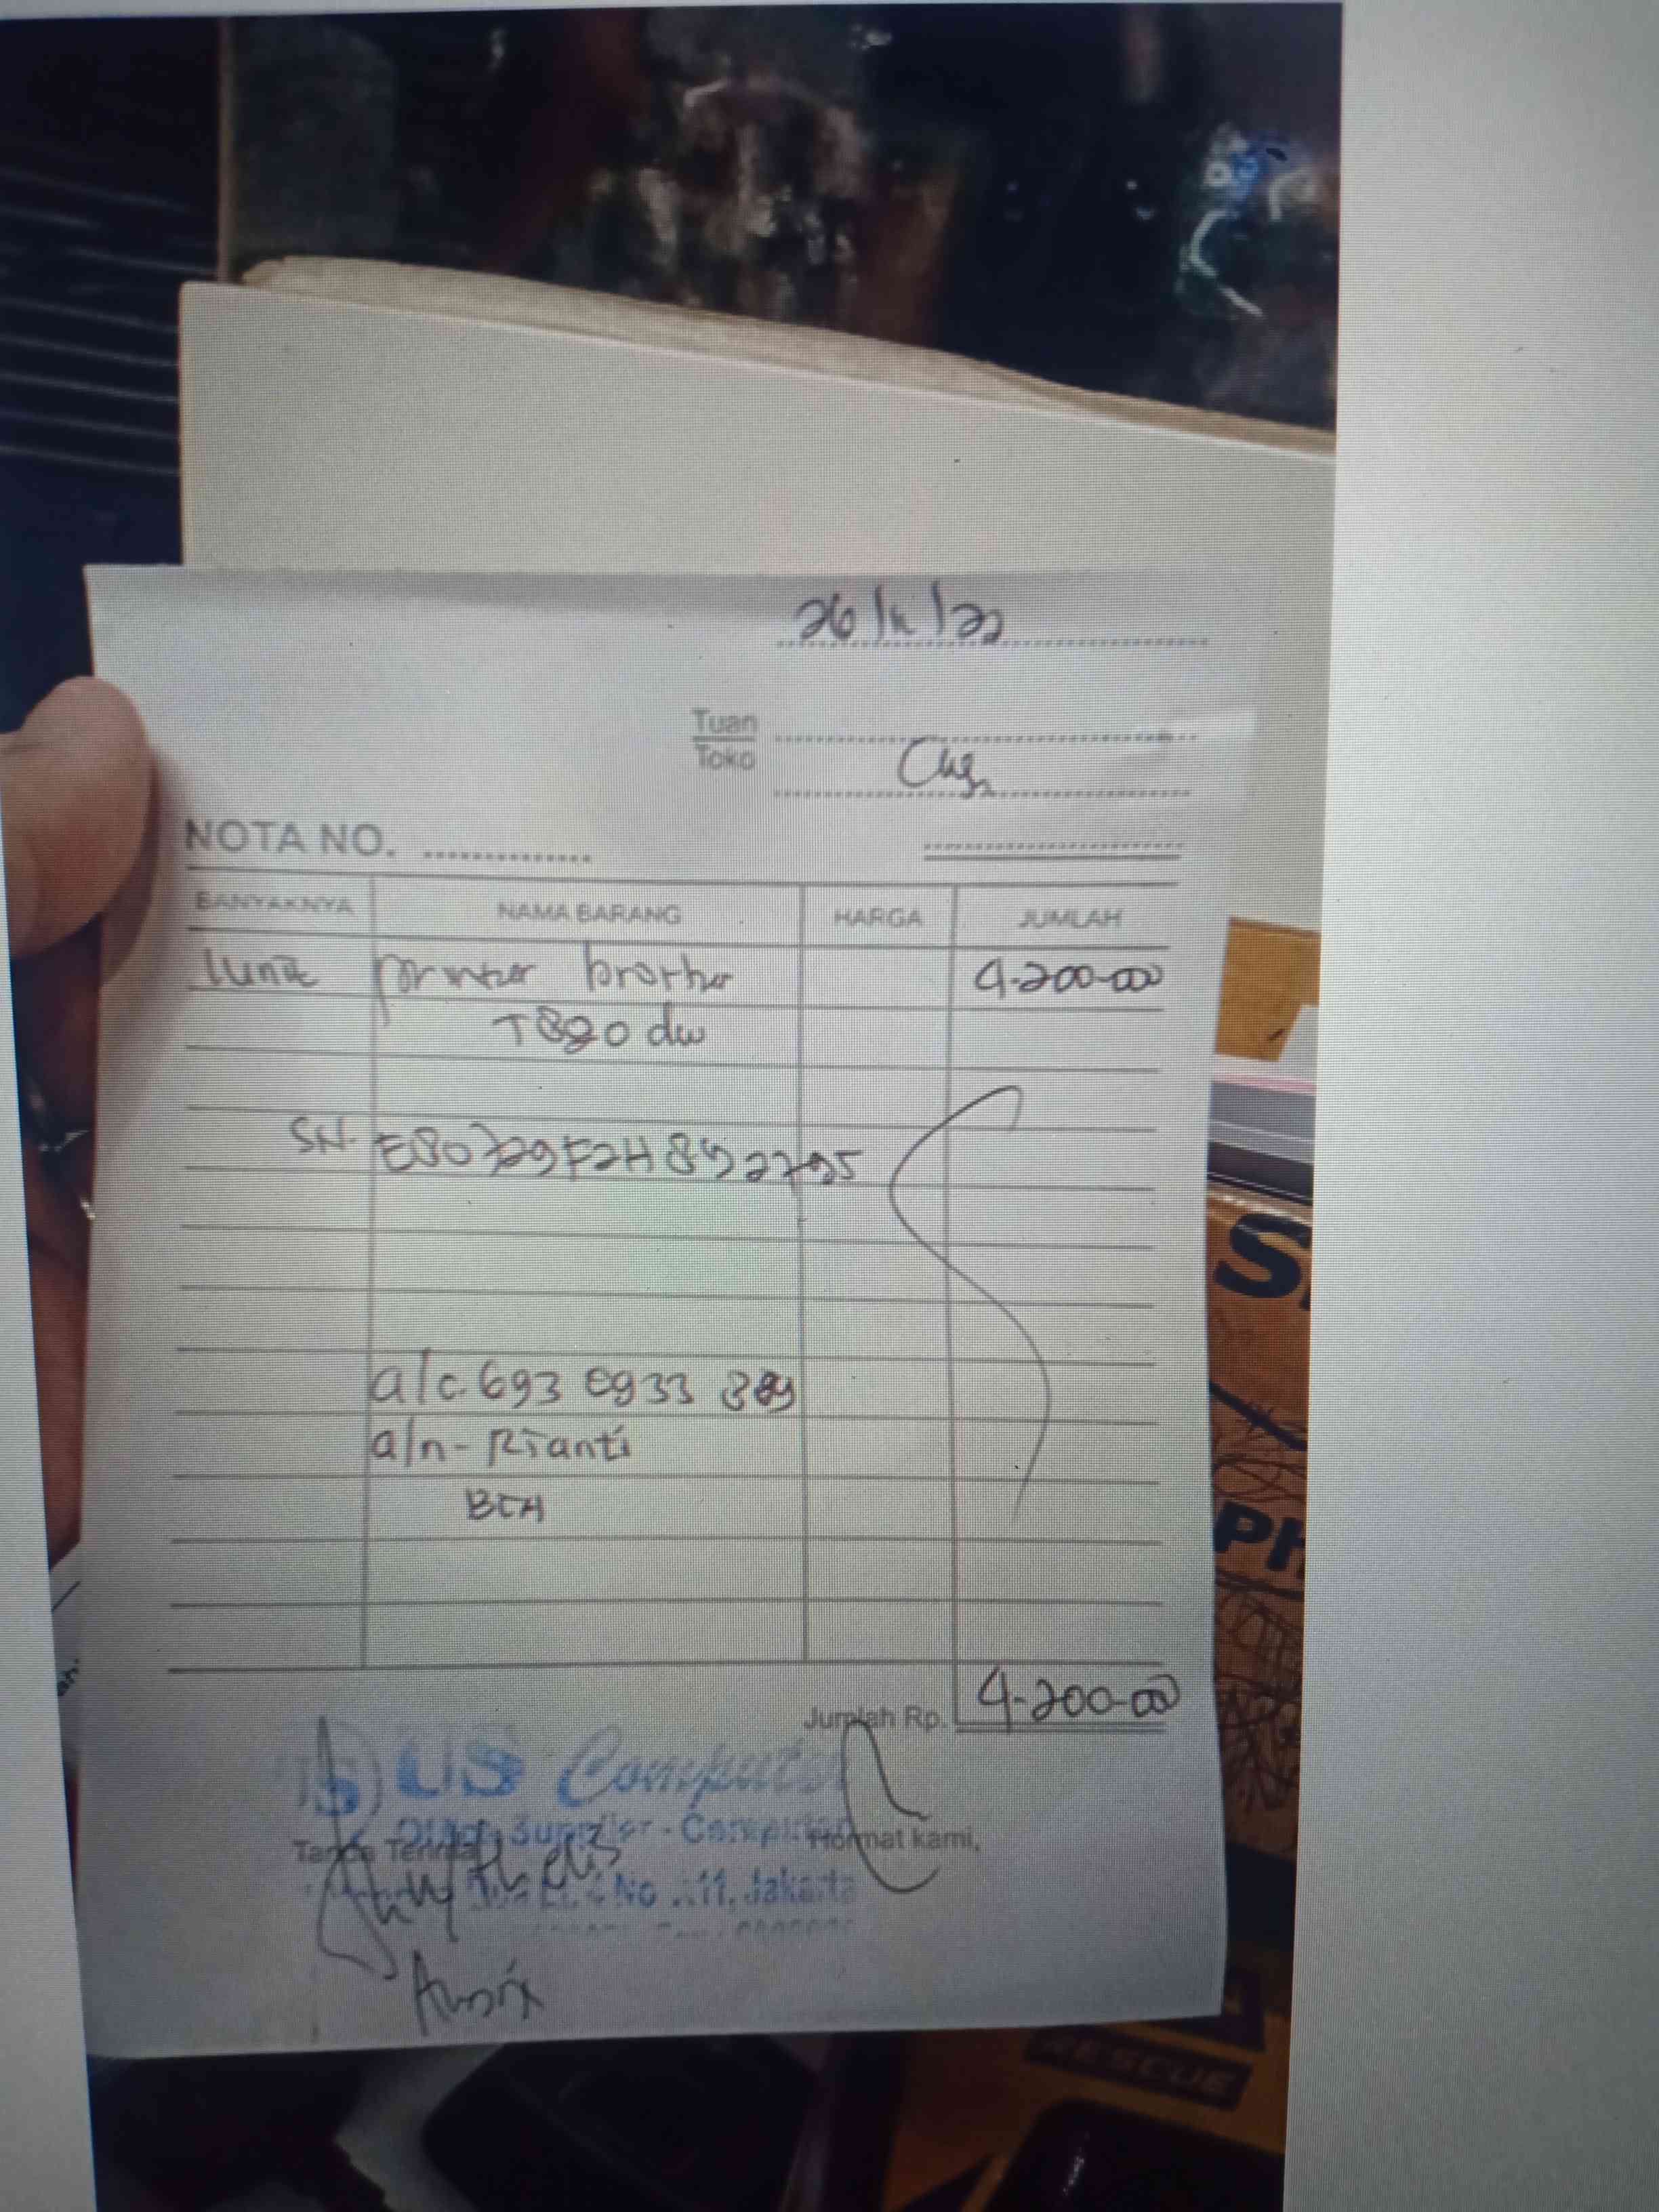 26/11/22
Tuan
Toko
Cash
NOTA NO.
BANYAKNYA NAMA BARANG HARGA JUMLAH
1unit printer brother 4.200.000
T820 dw
SN. E80729F2H892795
a/c. 693 0933 389
a/n - Rianti
BCA
Jumlah Rp. 4.200.000
US Computer
Supplier - Computer
Tanda Terima Hormat kami,
No 11, Jakarta
S
PH
RESCUE